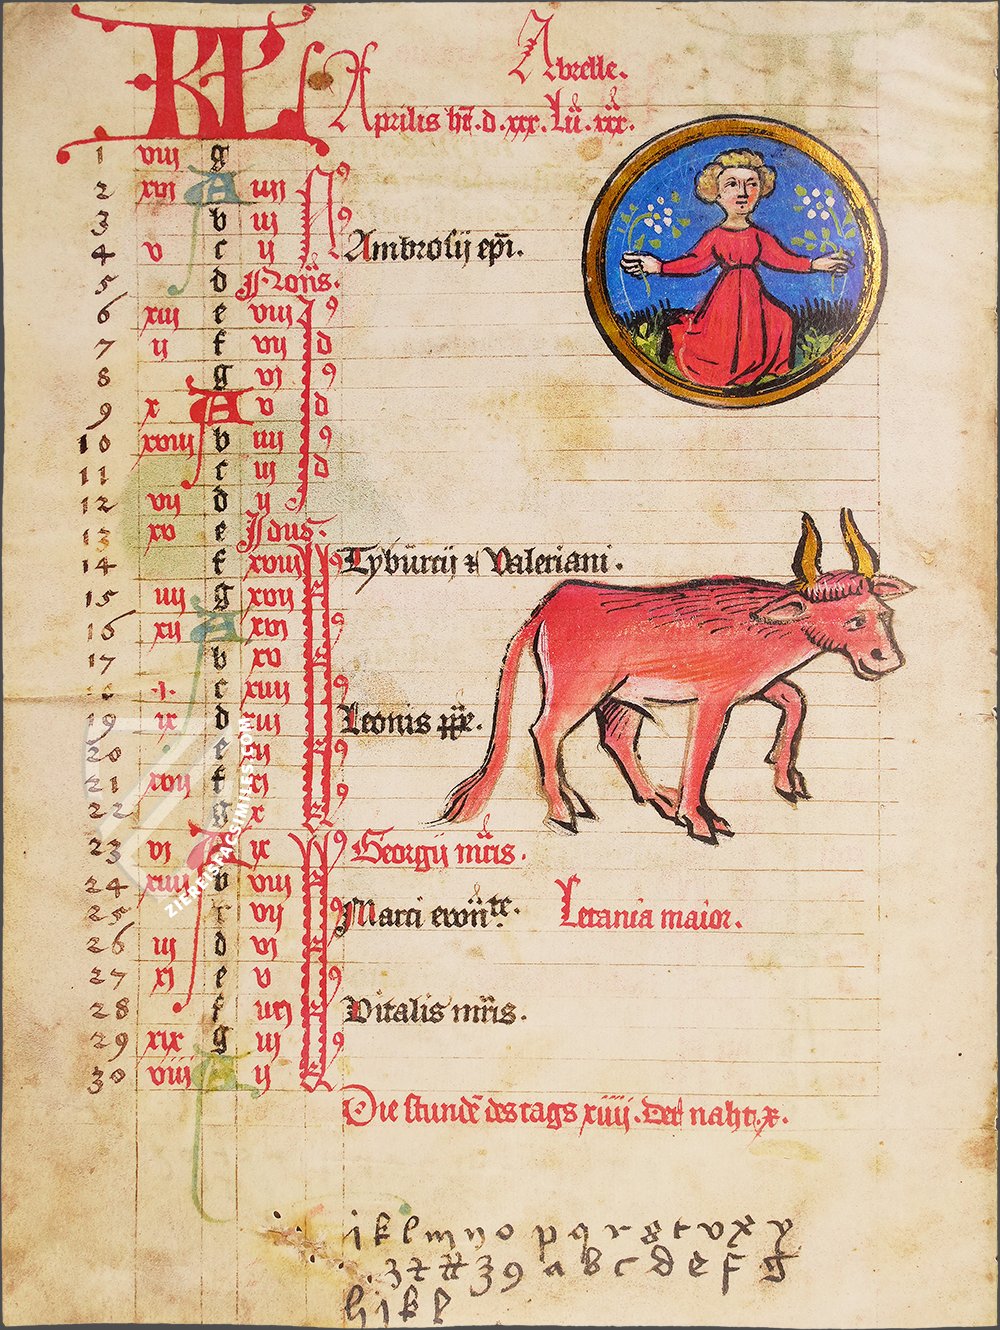 KL Abrelle.
Aprilis ht. d. xxx. Lu. xxx.
1 viii g
2 xvi A iiii N9
3 b iii 9
4 v c ii Ambrosij epi.
5 d Nonis.
6 xiii e viii 9
7 ij f vij d
8 g vj 9
9 x A v d
10 xviii b iiii 9
11 c iii d
12 vij d ij
13 xv e Idus.
14 f xviii Tyburcij & Valeriani.
15 iiii g xvij
16 xij A xvj 9
17 b xv
18 .i. c xiiii 9
19 ix d xiii Leonis ppe.
20 e xij 9
21 xvij f xj
22 g x 9
23 vj A ix 9 Georgij mris.
24 xiiii b viii
25 c vij 9 Marci ewte. Letania maior.
26 iij d vj
27 xj e v 9
28 f iiij Vitalis mris.
29 xix g iij 9
30 viii A ij
Die stunde des tags xiiij. Der naht. x.
i k l m n o p q r s t v x y
z & a b c d e f g
h i k l
ZIEREISFACSIMILES.COM